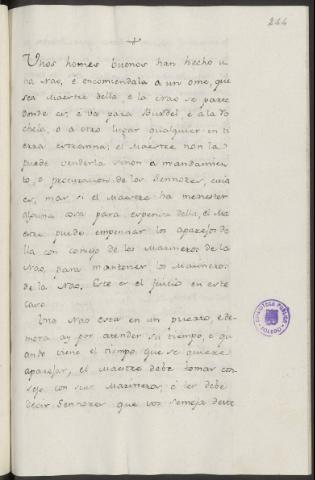 244
+
Unos homes buenos han hecho u
na Nao, é encomiendala a un ome, que
sea Maestre della, e la Nao se parte
donde es, é va para Burdel, é a la Ro
chela, o a otro lugar qualquier en ti
erra estranna; el Maestre non la
puede vender la sinon a mandamien
to, o procuracion de los Sennores, cuia
es, mas si el Maestre ha menester
alguna cosa para espensa della, el Ma
estre puede empennar los aparejos de
lla con consejo de los Marineros de la
Nao, para mantener los Marineros
de la Nao. Este es el juicio en este
caso.
Una Nao esta en un puerto, e de
mora ay por atender su tiempo, e qu
ando viene el tiempo que se quiere
aparejar, el Maestre debe tomar con
sejo con sus Marineros, é les debe
decir Sennores que vos semeja deste
BIBLIOTECA PUBLICA
TOLEDO